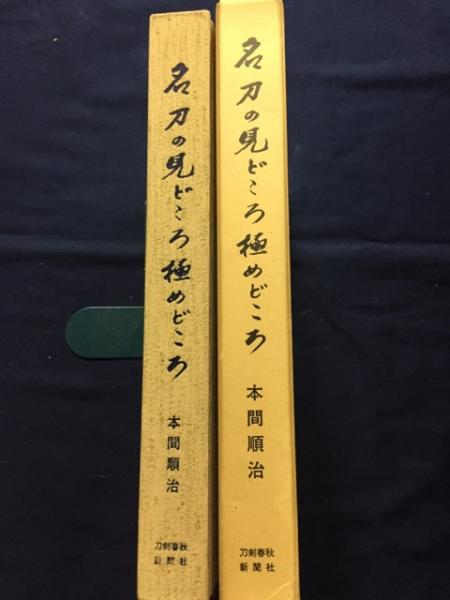 名刀の見どころ極めどころ
本間順治
刀剣春秋
新聞社
名刀の見どころ極めどころ
本間順治
刀剣春秋
新聞社